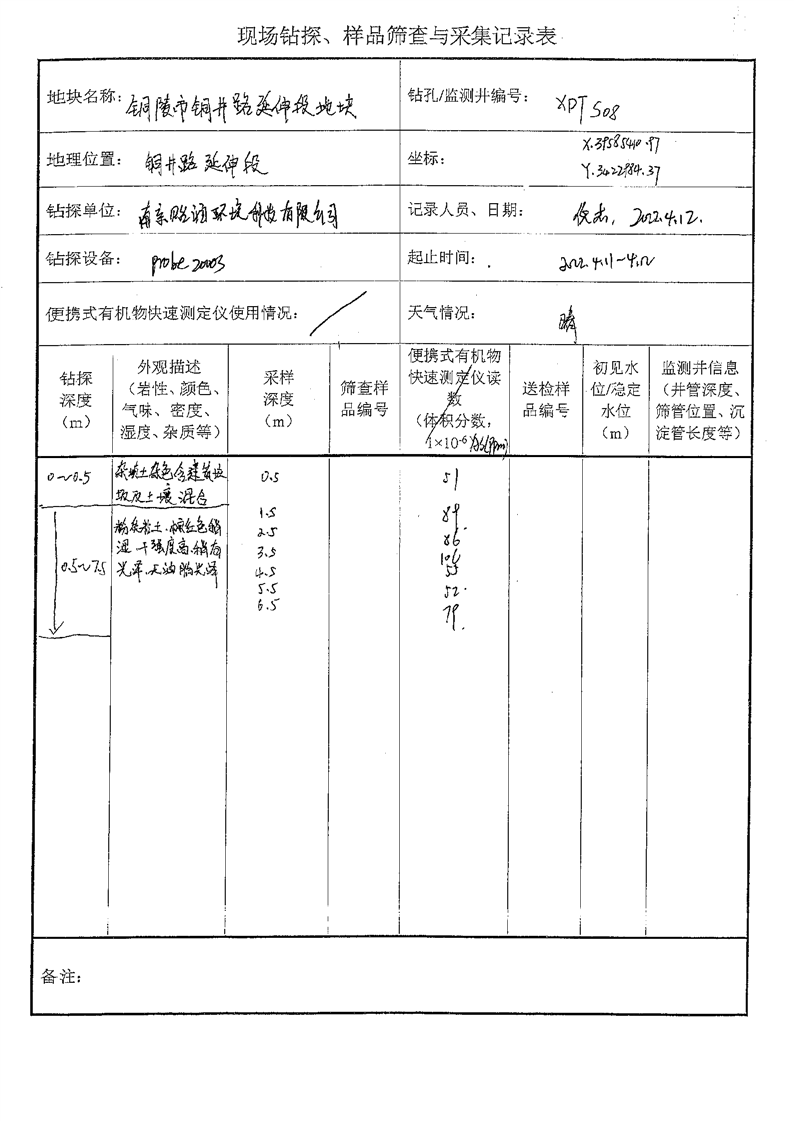 现场钻探、样品筛查与采集记录表
地块名称：铜陵市铜井路延伸段地块
钻孔/监测井编号： XPT S08
地理位置： 铜井路延伸段
坐标： X.39585410.97
Y.3422984.37
钻探单位： 南京 环境科技有限公司
记录人员、日期： 2022.4.12.
钻探设备： probe 2000S
起止时间： 2022.4.11~4.12
便携式有机物快速测定仪使用情况： /
天气情况： 晴
钻探
深度
（m）
外观描述
（岩性、颜色、
气味、密度、
湿度、杂质等）
采样
深度
（m）
筛查样
品编号
便携式有机物
快速测定仪读
数
（体积分数，
1×10-6 (ppm)
送检样
品编号
初见水
位/稳定
水位
（m）
监测井信息
（井管深度、
筛管位置、沉
淀管长度等）
0~0.5
杂填土杂色含建筑垃
圾及土壤混合
0.5
51
0.5~7.5
粉质粘土.棕红色稍
湿.干强度高.稍有
光泽.无油脂光泽
1.5
89
2.5
86
3.5
106
4.5
55
5.5
52
6.5
79
备注：